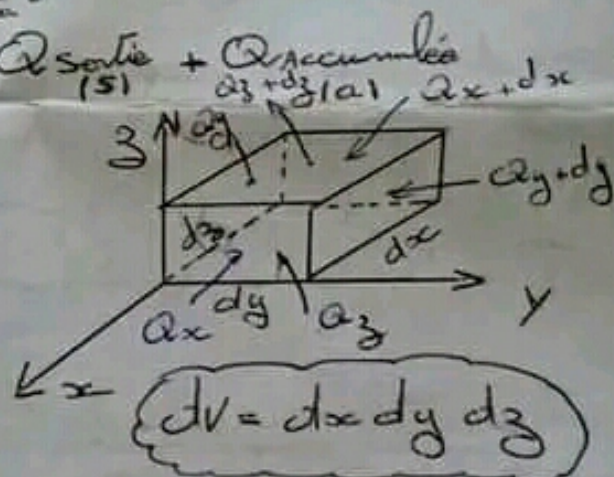 Q sortie + Q accumulée
(s) (a)
Qz+dz Qx+dx
z Qy
Qy+dy
dz dx
dy
Qx Qz y
x
dV = dx dy dz